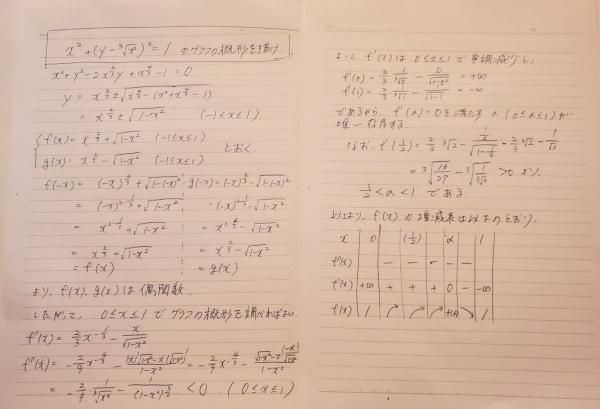 x²+(y-³√x²)²=1 のグラフの概形を描け.
x²+y²-2x^{2/3}y+x^{4/3}-1=0
y=x^{2/3}±√(x^{4/3}-(x²+x^{4/3}-1))
=x^{2/3}±√(1-x²) (-1≤x≤1).
{f(x)=x^{2/3}+√(1-x²) (-1≤x≤1)
g(x)=x^{2/3}-√(1-x²) (-1≤x≤1) とおく
f(-x)=(-x)^{2/3}+√(1-(-x)²) g(-x)=(-x)^{2/3}-√(1-(-x)²)
=(-x)^{2·1/3}+√(1-x²) =(-x)^{2·1/3}-√(1-x²)
=x^{2·1/3}+√(1-x²) =x^{2·1/3}-√(1-x²)
=x^{2/3}+√(1-x²) =x^{2/3}-√(1-x²)
=f(x) =g(x)
より, f(x), g(x)は偶関数.
したがって, 0≤x≤1 でグラフの概形を調べればよい.
f'(x)=2/3 x^{-1/3}-x/√(1-x²)
f''(x)=-2/9 x^{-4/3}-((x)'√(1-x²)-x(√(1-x²))')/(1-x²)=-2/9 x^{-4/3}-(√(1-x²)-x(-x)/√(1-x²))/(1-x²)
=-2/9·1/³√x⁴-1/(1-x²)^{3/2}<0 (0≤x≤1)
よって f'(x)は 0≤x≤1 で単調減少し,
f'(0)=2/3·1/³√0-0/√(1-0²)=+∞
f'(1)=2/3·1/³√1-1/√(1-1)=-∞
であるから, f'(α)=0を満たす α (0≤α≤1)が
唯一存在する.
なお, f'(1/2)=2/3 ³√2-(1/2)/√(1-1/4)=2/3 ³√2-1/√3
=³√(16/27)-³√(1/3√3)>0 より,
1/2<α<1 である.
以上より, f(x)の増減表は以下のとおり.
x 0 (1/2) α 1
f''(x) - - - - -
f'(x) +∞ + + + 0 - -∞
f(x) 1 f(α) 1